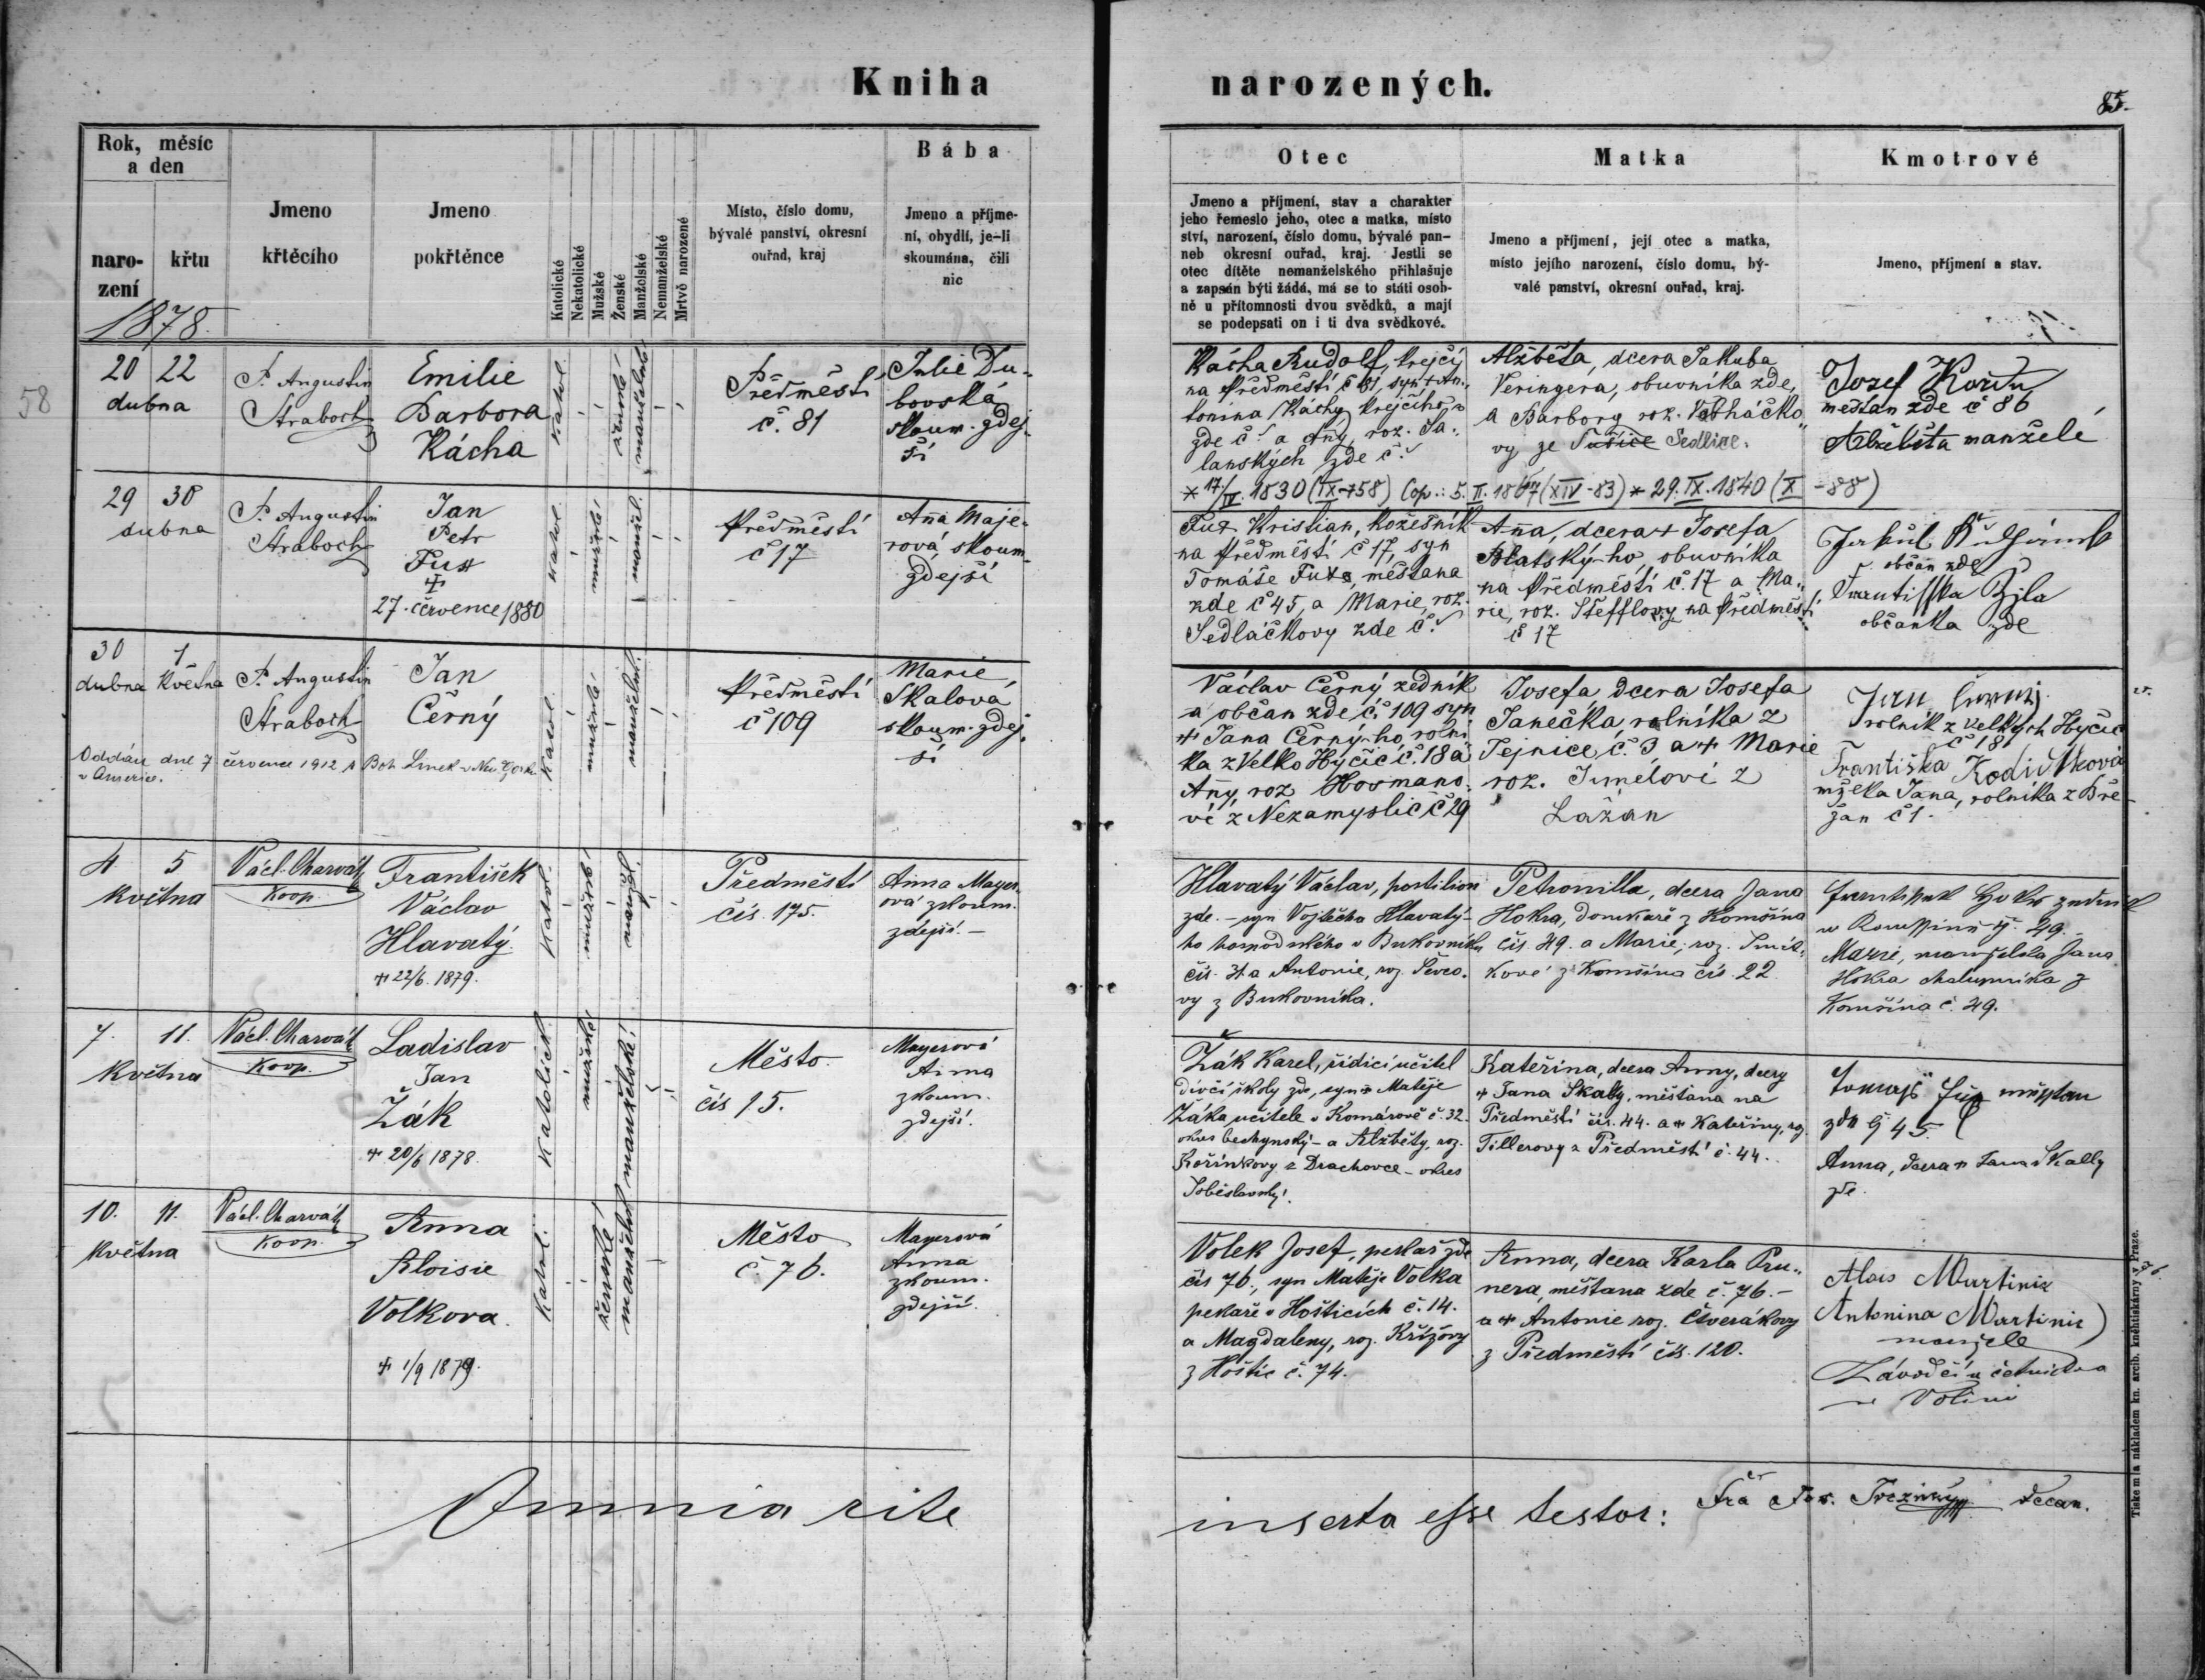 Kniha narozených.
85.
Rok, měsíc
a den
naro-
zení
křtu
Jmeno
křtěcího
Jmeno
pokřtěnce
Katolické
Nekatolické
Mužské
Ženské
Manželské
Nemanželské
Mrtvě narozené
Místo, číslo domu,
bývalé panství, okresní
ouřad, kraj
Bába
Jmeno a příjme-
ní, obydlí, je-li
skoumána, čili
nic
Otec
Jmeno a příjmení, stav a charakter
jeho řemeslo jeho, otec a matka, místo
ství, narození, číslo domu, bývalé pan-
neb okresní ouřad, kraj. Jestli se
otec dítěte nemanželského přihlašuje
a zapsán býti žádá, má se to státi osob-
ně u přítomnosti dvou svědků, a mají
se podepsati on i ti dva svědkové.
Matka
Jmeno a příjmení, její otec a matka,
místo jejího narození, číslo domu, bý-
valé panství, okresní ouřad, kraj.
Kmotrové
Jmeno, příjmení a stav.
1878.
58
20 22
dubna
P. Augustin
Straboch
Emilie
Barbora
Kácha
katol.
ženské
manželské
Předměstí
č. 81
Julie Du-
bovská
skoum. zdej-
ší
Kácha Rudolf, krejčí
na předměstí č 81, syn + An-
tonína Káchy krejčího
zde č. a Añy, roz. Ja-
lanských zde č.
Alžběta, dcera Jakuba
Veringera, obuvníka zde,
a Barbory roz.
vy ze Sušice Sedlice.
Josef
měšťan zde č 86
Alžběta manželé
* 17./IV. 1830 (IX-758) Cop.: 5. II. 1867 (XIV-83) * 29. IX. 1840 (X-88)
29 30
dubna
P. Augustin
Straboch
Jan
Petr
Fux
+
27. července 1880
katol.
mužské
manžel.
předměstí
č 17
Aña Maje-
rová, skoum.
zdejší
Fux Kristian, kožešník
na předměstí č 17, syn
Tomáše Fuxa, měšťana
zde č 45, a Marie, roz.
Sedláčkovy zde č.
Aña, dcera + Josefa
Blatskýho obuvníka
na předměstí č. 17 a Ma-
rie, roz. Štefflovy na předměstí
č 17
občan zde
Frantiska
občanka zde
30 1
dubna Května
P. Augustin
Straboch
Jan
Černý
Oddán dne 7 července 1912 s Boh. Linek v New Yorku
v Americe.
katol.
mužské
manželské
předměstí
č 109
Marie
Skalová
skoum. zdej-
ší
Václav Černý zedník
a občan zde č. 109 syn
+ Jana Černýho rolní-
ka z Velko Hyčic č. 18 a
Añy, roz Hosmano-
vé z Nezamyslic č 29
Josefa, dcera Josefa
Janečka, rolníka z
Tejnice, č. 3 a + Marie
roz. Jumélovi z
Lažan
Jan Černý
rolník z velkých Hyčic
č 18
Františka
mželka Jana, rolníka z Bře-
žan č 1.
4 5
května
Václ. Charvát
Koop.
František
Václav
Hlavatý
+ 22/6. 1879.
Katol.
mužské
manžel.
Předměstí
čís. 175.
Anna Mayer-
ová zkoum.
zdejší. –
Hlavatý Václav, postilion
zde. – syn Vojtěcha Hlavatý-
ho hospodského v Bukovníku
čís. 31 a Antonie, roz. Ševco-
vy z Bukovníka.
Petronilla, dcera Jana
Hokra, domkaře z Komšína
čís. 49. a Marie, roz. Smít-
kové z Komšína čís. 22
č. 49.
Marie, manželka Jana
Hokra chalupníka z
Komšína č. 49.
7. 11.
května
Václ. Charvát
Koop.
Ladislav
Jan
Žák
+ 20/6 1878.
Katolické
mužské
manželské
Město
čís 15.
Mayerová
Anna
zkoum.
zdejší.
Žák Karel, řídící učitel
dívčí školy zde, syn + Matěje
Žáka učitele v Komárově č. 32.
okres bechyňský – a Alžběty, roz.
Kořínkovy z Drachovce – okres
Soběslavský.
Kateřina, dcera Anny, dcery
+ Jana Skaly, měšťana na
Předměstí čís. 44. a + Kateřiny, roz.
Tillerovy z Předměstí č. 44.
Tomáš Fux
zde č 45.
Anna, dcera + Jana Skally
zde.
10. 11.
května
Václ. Charvát
Koop.
Anna
Aloisie
Volkova.
+ 1/9 1879.
Katol.
ženské
manželské
Město
č. 76.
Mayerová
Anna
zkoum.
zdejší.
Volek Josef, pekař zde
čís 76., syn Matěje Volka
pekaře v Hošticích č. 14.
a Magdaleny, roz. Křížovy
z Hoštic č. 74.
Anna, dcera Karla Pru-
nera, měšťana zde č. 76. –
a + Antonie roz. Čtverákovy
z Předměstí čís. 120.
Alois Martinic
Antonina Martinic
manželé
Závodčí u četnictva
ve Volini
Omnia rite inserta esse testor:
Decan.
Tiskem a nákladem kn. arcib. knihtiskárny v Praze.